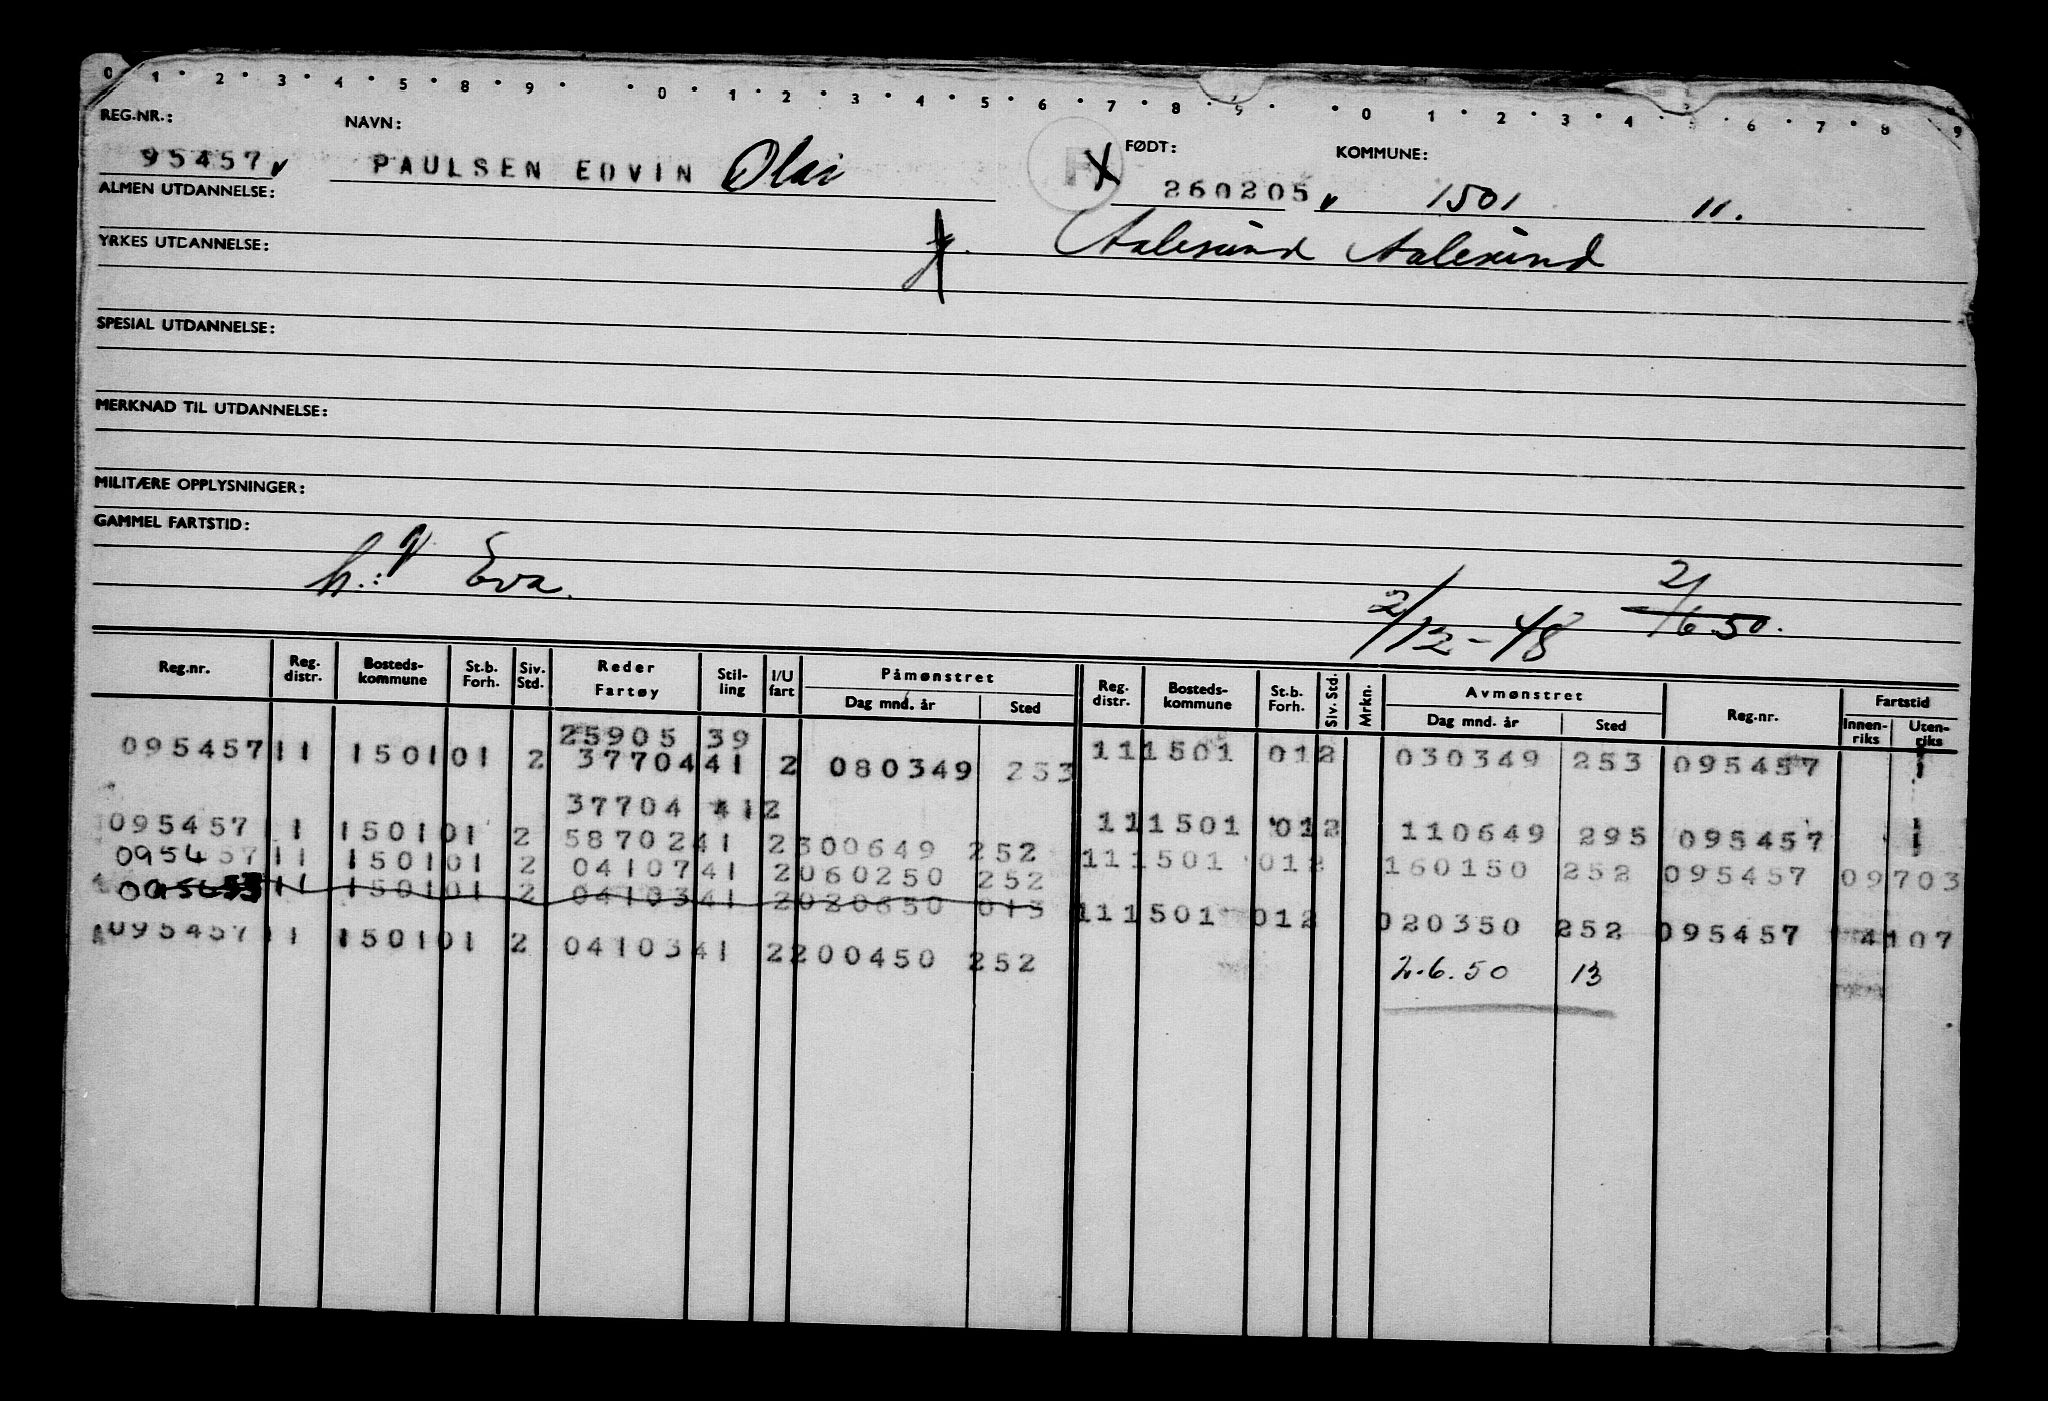 0 1 2 3 4 5 6 7 8 9 0 1 2 3 4 5 6 7 8 9 0 1 2 3 4 5 6 7 8 9
REG.NR.: NAVN: FØDT: KOMMUNE:
95457 PAULSEN EDVIN Olai 260205 1501 11.
ALMEN UTDANNELSE:
g. Aalesund Aalesund
YRKES UTDANNELSE:
SPESIAL UTDANNELSE:
MERKNAD TIL UTDANNELSE:
MILITÆRE OPPLYSNINGER:
GAMMEL FARTSTID:
h.: g Eva. 2/12-48 2/6.50.
Reg.nr. Reg. distr. Bosteds-kommune St.b. Forh. Siv. Std. Reder Fartøy Stil-ling I/U fart Påmønstret Dag mnd. år Sted Reg. distr. Bosteds-kommune St.b. Forh. Siv. Std. Mrkn. Avmønstret Dag mnd. år Sted Reg.nr. Fartstid Innen-riks Uten-riks
25905 39
095457 11 1501 01 2 37704 41 2 080349 253 11 1501 01 2 030349 253 095457 1
37704 41 2
095457 11 1501 01 2 58702 41 2 300649 252 11 1501 01 2 110649 295 095457 1
095457 11 1501 01 2 04107 41 2 060250 252 11 1501 01 2 160150 252 095457 09703
11 1501 01 2 04103 41 2 020650 013 11 1501 01 2 020350 252 095457 4107
095457 11 1501 01 2 04103 41 2 200450 252 2.6.50 13